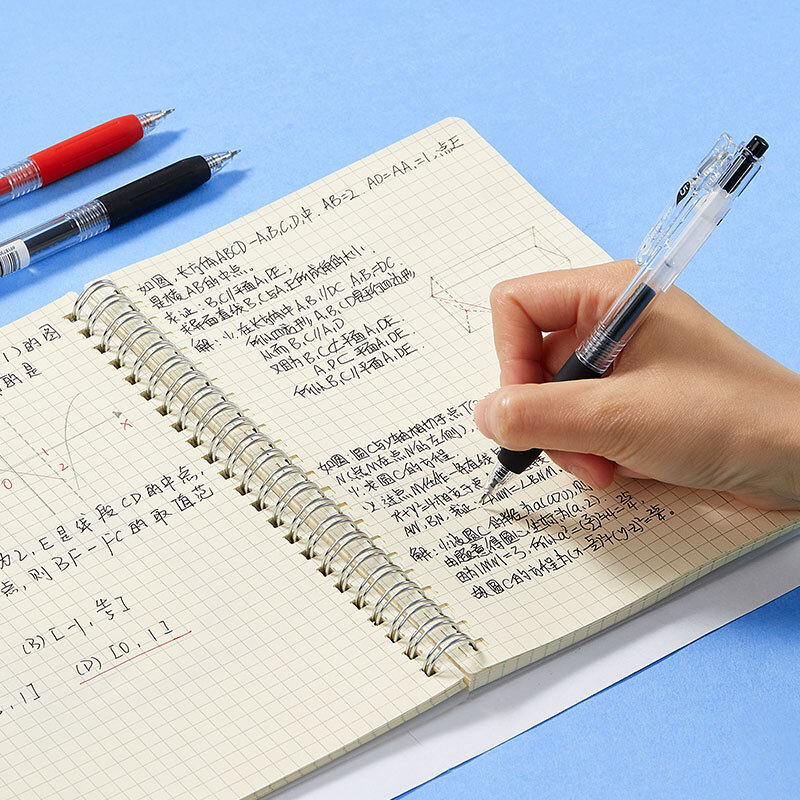 1)的图
的是
0 1 2 x
为2,E是线段CD的中点,
点,则BF-FC的取值范
(B) [-1, 
(D) [0, 1]
, 1]
如图,长方体ABCD-A₁B₁C₁D₁中,AB=2, AD=AA₁=1,点E
是棱AB的中点.
求证:B₁C//平面A₁DE,
求异面直线B₁C与A₁E所成角的大小.
解:(1).在长方体中A₁B₁//DC A₁B₁=DC
所以四边形A₁B₁CD是平行四边形
从而B₁C//A₁D
又因为B₁C⊄平面A₁DE
A₁D⊂平面A₁DE.
所以B₁C//平面A₁DE.
如图,圆C与y轴相切于点T(
N(点M在点N的左侧),
1.求圆C的方程.
2.过点M任作一条直线
x²+y²=4相交于
AN,BN,求证:
解:(1)设圆C的半径为a(a>0),
由题意得圆心坐标为(a,2).
因为|MN|=3,所以a²=(3/2)²+4=25/4.
故圆C的方程为(x-5/2)²+(y-2)²=25/4.